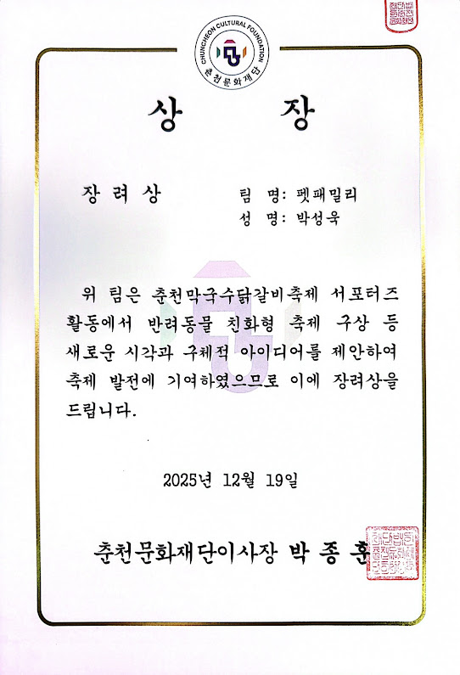 CHUNCHEON CULTURAL FOUNDATION
춘천문화재단
상 장
장려상
팀 명: 펫패밀리
성 명: 박성욱
위 팀은 춘천막국수닭갈비축제 서포터즈
활동에서 반려동물 친화형 축제 구상 등
새로운 시각과 구체적 아이디어를 제안하여
축제 발전에 기여하였으므로 이에 장려상을
드립니다.
2025년 12월 19일
춘천문화재단이사장 박종훈